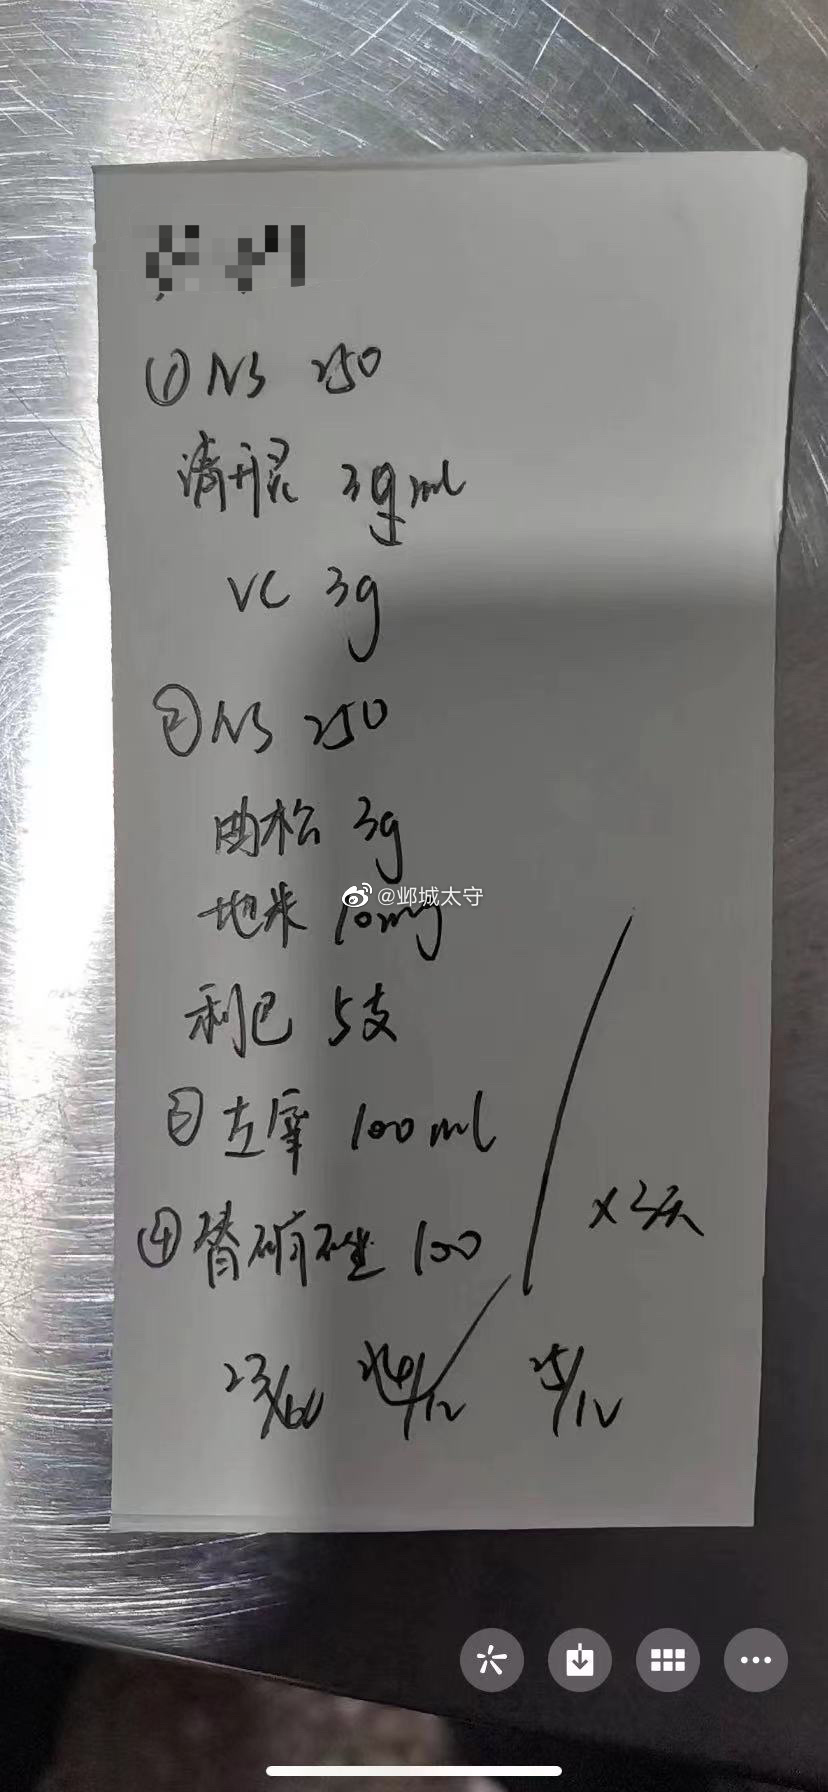 ① NS 250
清开灵 30ml
VC 3g
② NS 250
曲松 3g
@邺城太守
地米 10mg
利巴 5支
③ 左 100ml
④ 硝唑 100
×3天
23/12 24/12 25/12